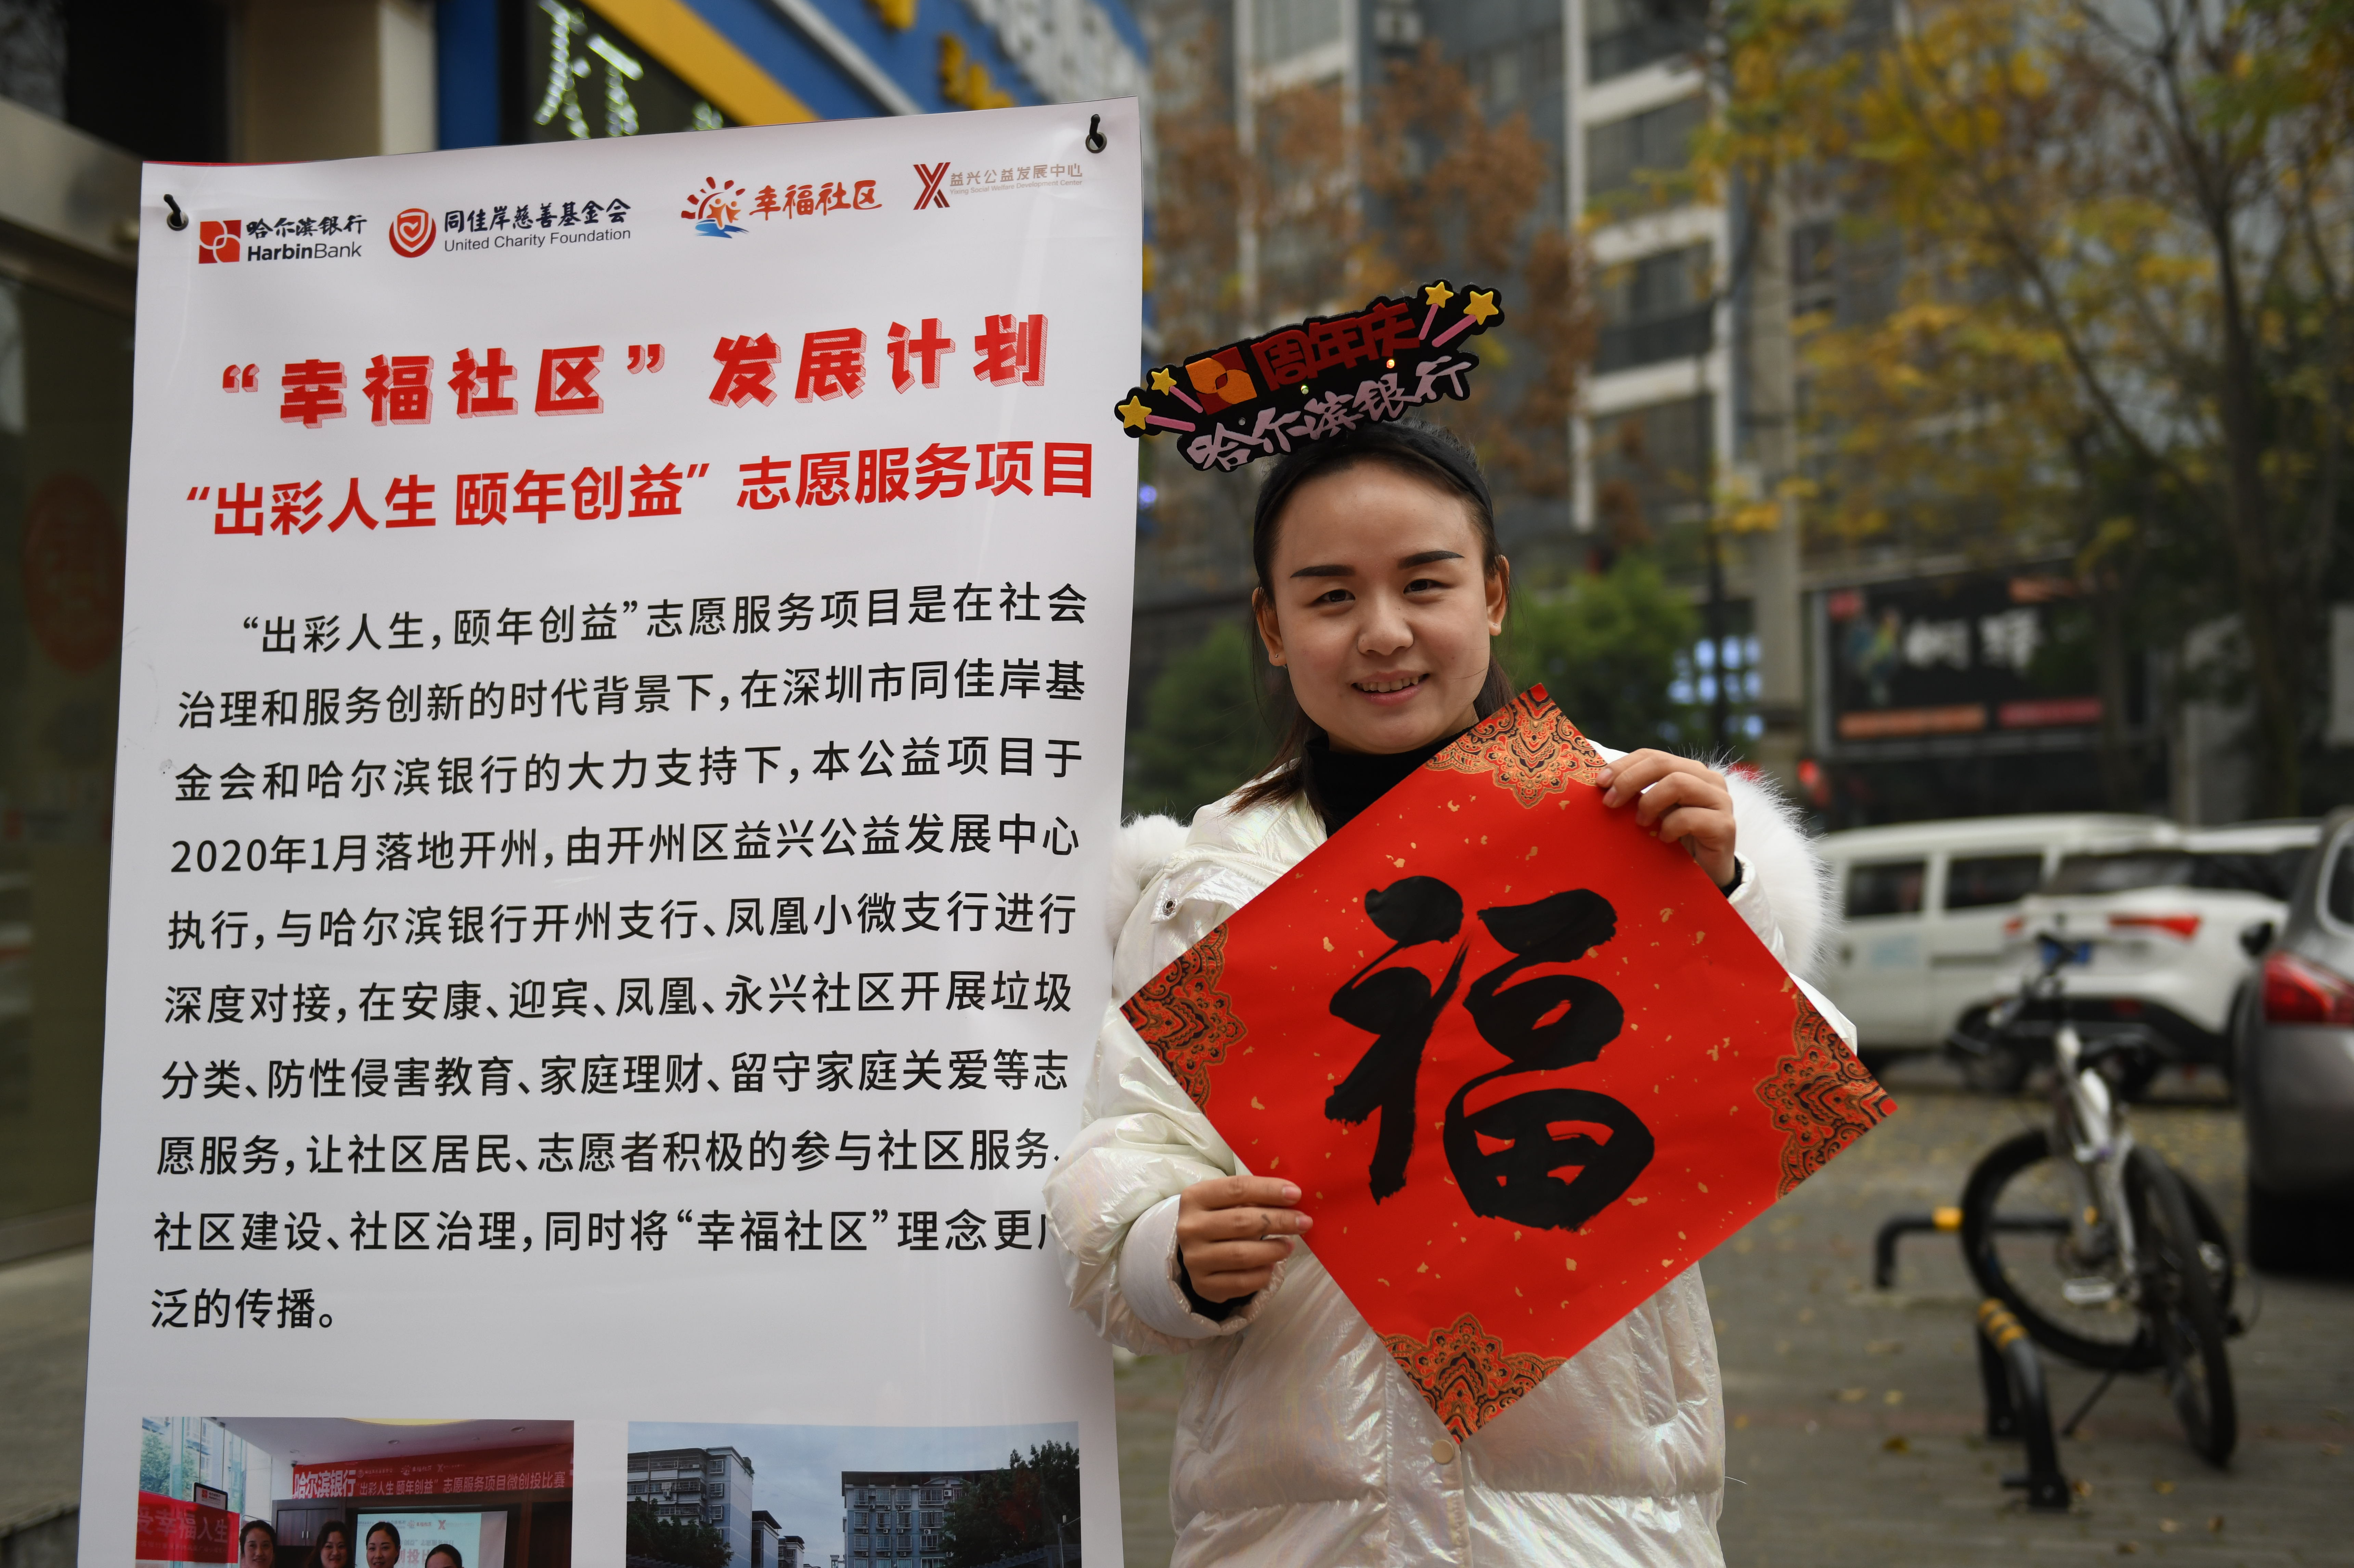 哈尔滨银行
HarbinBank
同佳岸慈善基金会
United Charity Foundation
幸福社区
益兴公益发展中心
Yixing Social Welfare Development Center
“幸福社区”发展计划
“出彩人生 颐年创益”志愿服务项目
“出彩人生，颐年创益”志愿服务项目是在社会
治理和服务创新的时代背景下，在深圳市同佳岸基
金会和哈尔滨银行的大力支持下，本公益项目于
2020年1月落地开州，由开州区益兴公益发展中心
执行，与哈尔滨银行开州支行、凤凰小微支行进行
深度对接，在安康、迎宾、凤凰、永兴社区开展垃圾
分类、防性侵害教育、家庭理财、留守家庭关爱等志
愿服务，让社区居民、志愿者积极的参与社区服务、
社区建设、社区治理，同时将“幸福社区”理念更广
泛的传播。
哈尔滨银行“出彩人生 颐年创益”志愿服务项目微创投比赛
幸福人生
周年庆
哈尔滨银行
福